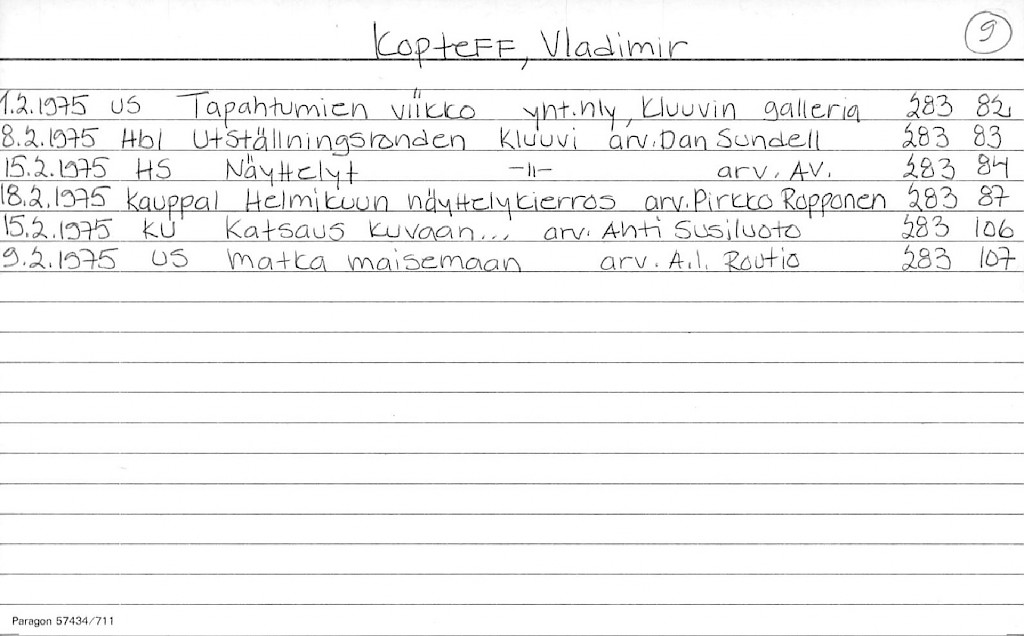 Kopteff, Vladimir 9
1.2.1975 US Tapahtumien viikko ynt.nly, Kluuvin galleria 283 82
8.2.1975 Hbl Utställningsronden Kluuvi arv. Dan Sundell 283 83
15.2.1975 HS Näyttelyt -"- arv. AV. 283 84
18.2.1975 Kauppal Helmikuun näyttelykierros arv. Pirkko Ropponen 283 87
15.2.1975 KU Katsaus kuvaan... arv. Ahti Susiluoto 283 106
9.2.1975 US Matka maisemaan arv. A.I. Routio 283 107
Paragon 57434/711